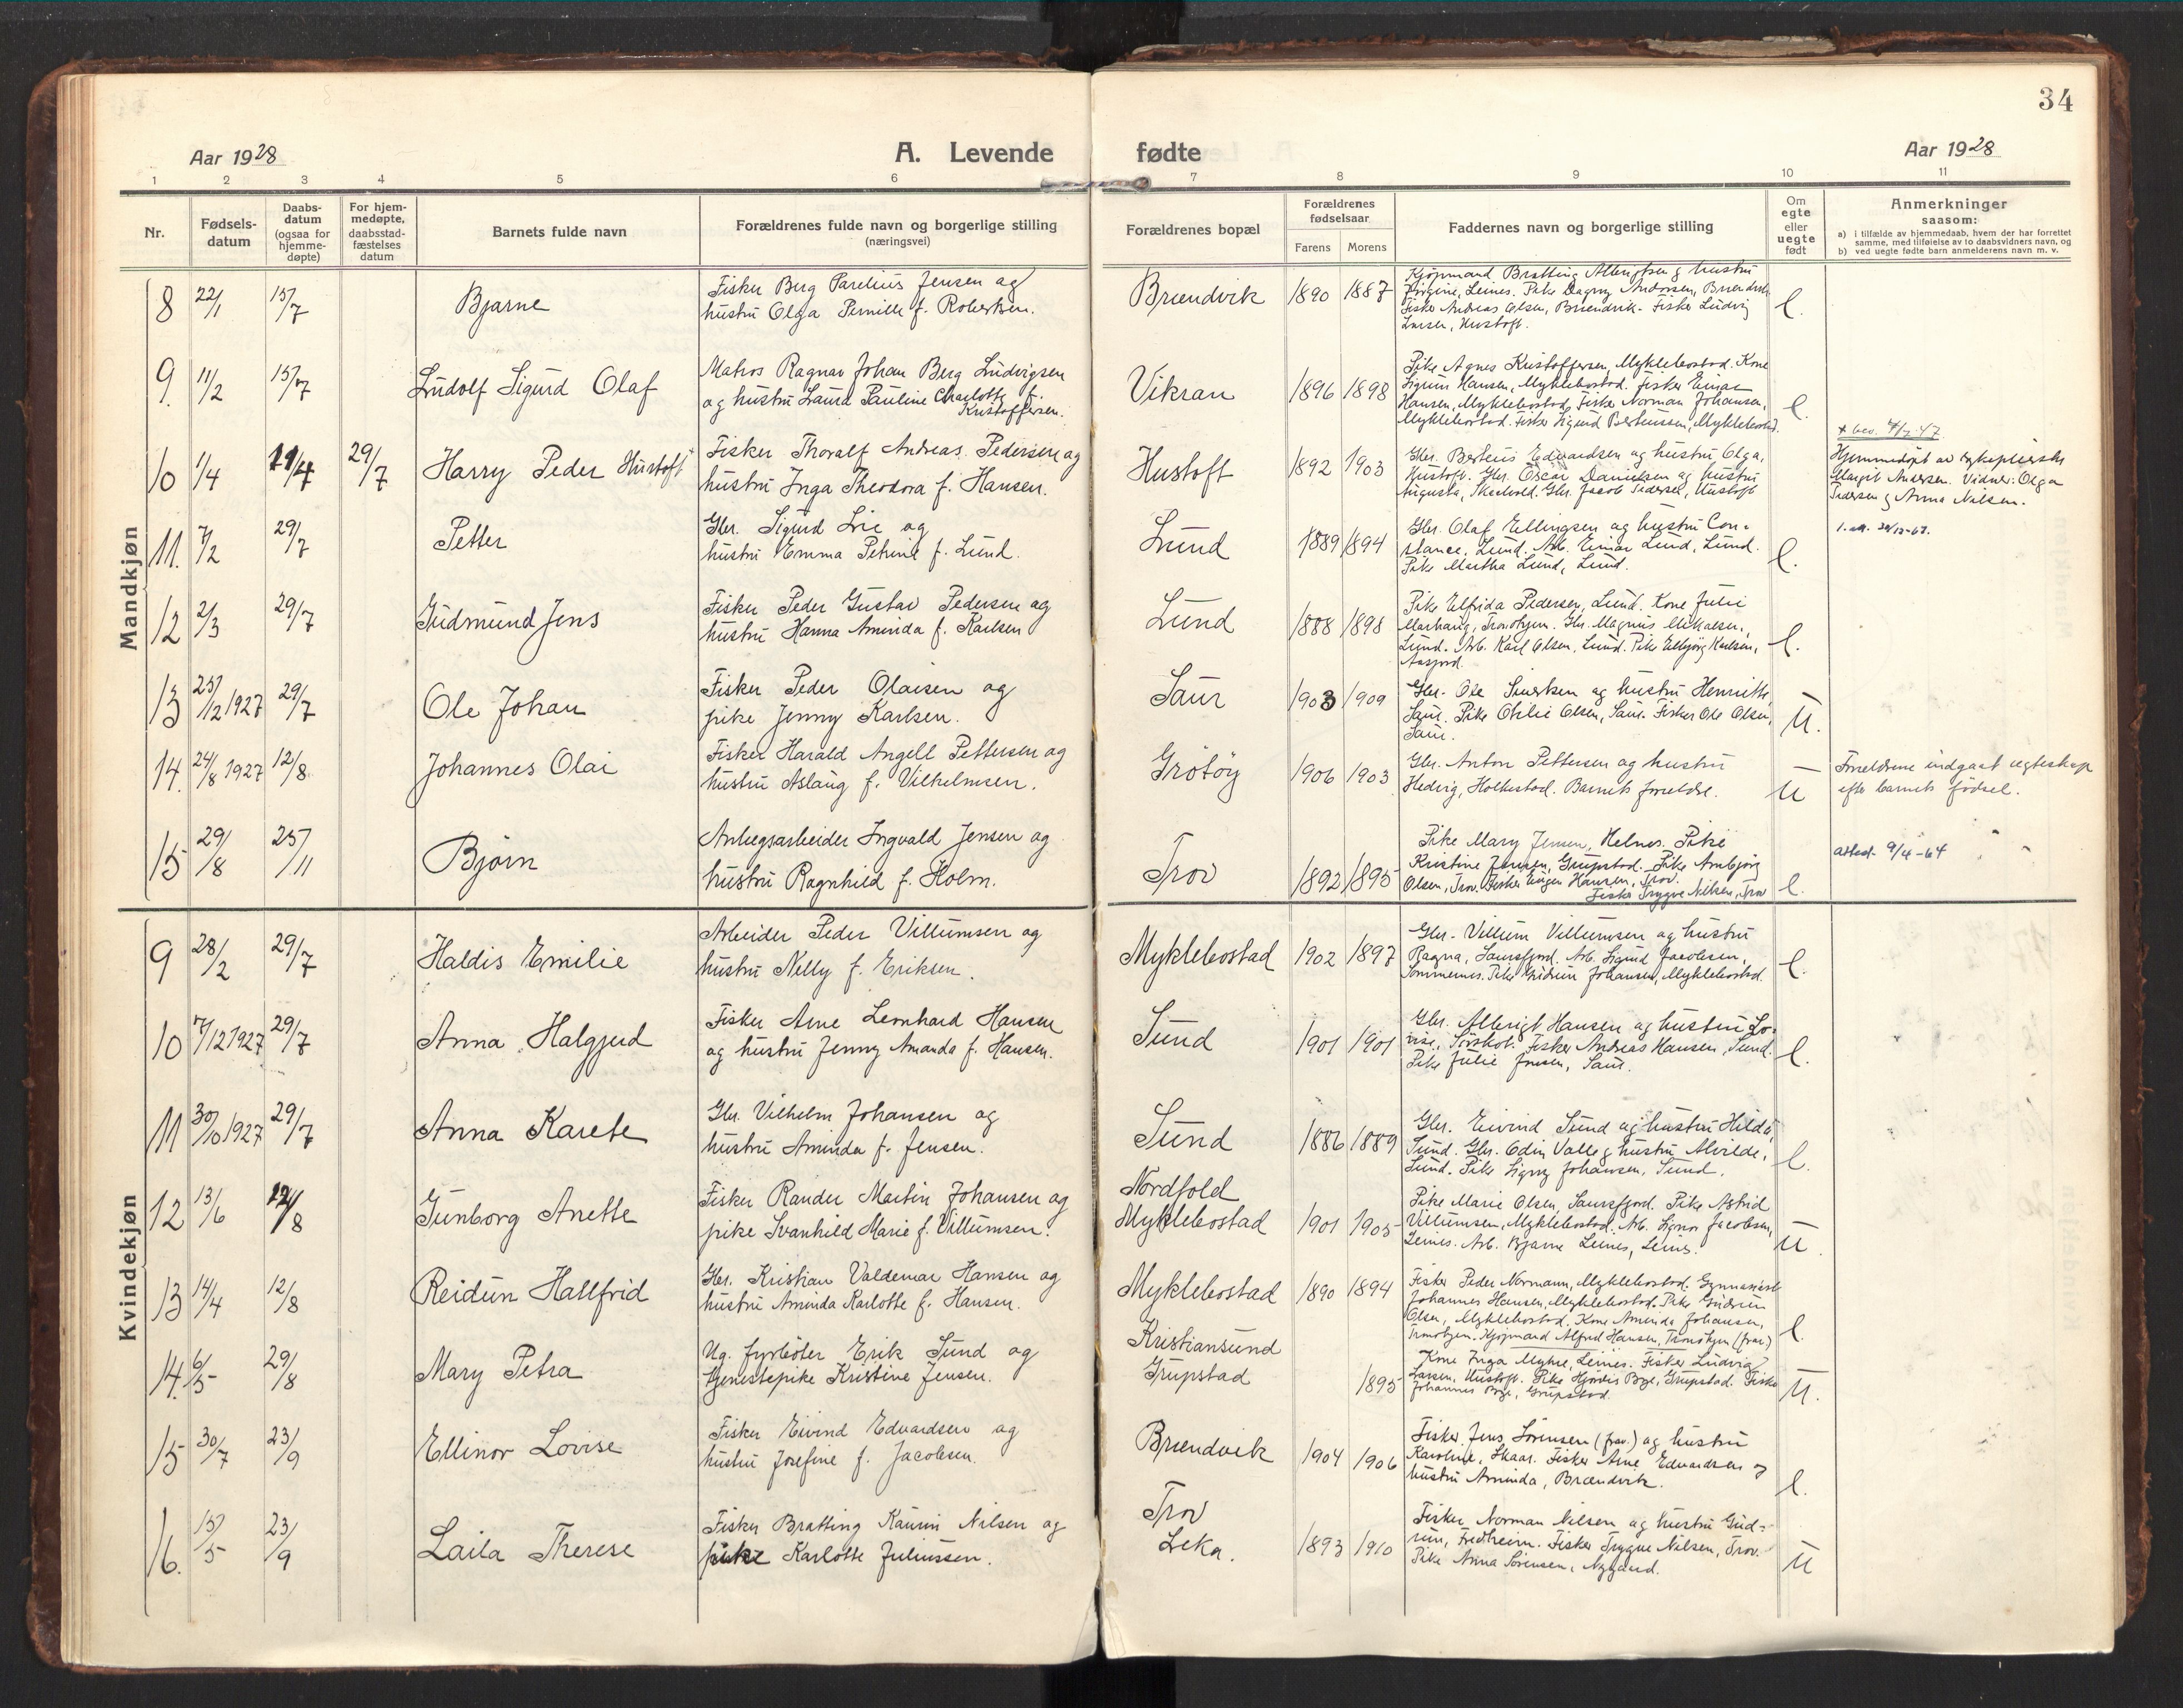 34
Aar 1928
A. Levende fødte
Aar 1928
1 2 3 4 5 6 7 8 9 10 11
Nr.
Fødsels-
datum
Daabs-
datum
(ogsaa for
hjemme-
døpte)
For hjem-
medøpte,
daabsstad-
fæstelses
datum
Barnets fulde navn
Forældrenes fulde navn og borgerlige stilling
(næringsvei)
Forældrenes bopæl
Forældrenes
fødselsaar
Farens Morens
Faddernes navn og borgerlige stilling
Om
egte
eller
uegte
født
Anmerkninger
saasom:
a) i tilfælde av hjemmedaab, hvem der har forrettet
samme, med tilføielse av to daabsvidners navn, og
b) ved uegte fødte barn anmelderens navn m. v.
Mandkjøn
8 22/1 15/7 Bjarne
Fisker Berg Parelius Jensen og
hustru Olga Pernille f. Robertsen.
Brændvik 1890 1887
Kjøpmand Bratting Albrigtsen & hustru
Jørgine, Leines. Pike Dagny Andorsen, Brændvik
Fisker Andreas Olsen, Brændvik. Fisker Ludvig
Larsen, Hustoft.
e.
9. 11/2 15/7 Ludolf Sigurd Olaf
Matros Ragnar Johan Berg Ludvigsen
og hustru Laura Pauline Charlotte f.
Kristoffersen.
Vikran 1896 1898
Pike Agnes Kristoffersen, Myklebostad. Kone
Sigrun Hansen, Myklebostad. Fisker Einar
Hansen, Myklebostad. Fisker Norman Johansen,
Myklebostad. Fisker Sigurd Berteussen, Myklebostad.
e.
10 1/4 11/4 29/7 Harry Peder Hustoft
Fisker Thoralf Andreas Pedersen og
hustru Inga Theodora f. Hansen.
Hustoft 1892 1903
Gbr. Berteus Edvardsen og hustru Olga,
Hustoft. Gbr. Oscar Danielsen og hustru
Augusta, Gbr. Jacob Pedersen, Hustoft
Hjemmedøpt av sykepleierske
Margit Andersen. Vidner: Olga
Pedersen & Anna Nilsen.
11. 7/2 29/7 Petter
Gbr. Sigurd Lie og
hustru Emma Petrine f. Lund.
Lund 1889 1894
Gbr. Olaf Ellingsen og hustru Con-
stance, Lund. Arb. Einar Lund, Lund.
Pike Martha Lund, Lund.
e.
12 2/3 29/7 Gudmund Jens
Fisker Peder Gustav Pedersen og
hustru Hanna Aminda f. Karlsen
Lund 1888 1898
Pike Elfrida Pedersen, Lund. Kone Julie
Marhaug, Trondhjem. Gbr. Magnus Mikalsen,
Lund. Arb. Karl Olsen, Lund. Pike Ellbjørg Karlsen,
Aasjord.
e.
13 25/12 1927 29/7 Ole Johan
Fisker Peder Olaisen og
pike Jenny Karlsen.
Saur 1903 1909
Gbr. Ole Sivertsen og hustru Henritte,
Saur. Pike Otilie Olsen, Saur. Fisker Ole Olsen,
Saur.
U.
14. 24/8 1927 12/8 Johannes Olai
Fisker Harald Angell Pettersen og
hustru Aslaug f. Vilhelmsen.
Grötöy 1906 1903
Gbr. Anton Pettersen og hustru
Hedvig, Holkestad. Barnets forældre.
U
Forældrene indgaat egteskap
efter barnets födsel.
15 29/8 25/11 Bjørn
Anlegsarbeider Ingvald Jensen og
hustru Ragnhild f. Holm.
Trov 1892 1895
Pike Mary Jensen, Helnes. Pike
Kristine Jensen, Grupstad. Pike Arnbjörg
Olsen, Trov. Fisker Eugen Hansen, Trov.
Fisker Trygve Nilsen, Trov
e.
9/4-64
Kvindekjøn
9 28/2 29/7 Haldis Emilie
Arbeider Peder Villumsen og
hustru Nelly f. Eriksen.
Myklebostad 1902 1897
Gbr. Villum Villumsen og hustru
Ragna, Saursfjord. Arb. Sigurd Jacobsen,
Sommernes. Pike Gudrun Johansen, Myklebostad.
e.
10 7/12 1927 29/7 Anna Halgjerd
Fisker Arne Leonhard Hansen
og hustru Jenny Amanda f. Hansen.
Sund 1901 1901
Gbr. Albrigt Hansen og hustru Lo-
vise, Sörskot. Fisker Andreas Hansen, Sund.
Pike Julie Jensen, Saur.
e.
11 30/10 1927 29/7 Anna Karete
Gbr. Vilhelm Johansen og
hustru Aminda f. Jensen.
Sund 1886 1889
Gbr. Eivind Sund og hustru Hilda,
Sund. Gbr. Odin Valle & hustru Alvilde,
Sund. Pike Signy Johansen, Sund.
e.
12 13/6 12/8 Gunborg Anette
Fisker Rander Martin Johansen og
pike Svanhild Marie f. Villumsen.
Nordfold
Myklebostad 1901 1905
Pike Marie Olsen, Saursfjord. Pike Astrid
Villumsen, Myklebostad. Arb. Signor Jacobsen,
Leines. Arb. Bjarne Leines, Leines.
U.
13 14/4 12/8 Reidun Hallfrid
Gbr. Kristian Valdemar Hansen og
hustru Aminda Karlotte f. Hansen.
Myklebostad 1890 1894
Fisker Peder Normann, Myklebostad. Gymnasiast
Johannes Hansen, Myklebostad. Pike Gudrun
Olsen, Myklebostad. Kone Aminda Johansen,
Trondhjem. Kjöpmand Alfred Hansen, Trondhjem (frav.)
e.
14. 6/5 29/8 Mary Petra
Ug. fyrböter Erik Sund og
tjenestepike Kristine Jensen.
Kristiansund
Grupstad 1895
Kone Inga Myhre, Leines. Fisker Ludvig
Larsen, Hustoft. Pike Hjördis Bye, Grupstad. Fisker
Johannes Bye, Grupstad.
U.
15 30/7 23/9 Ellinor Lovise
Fisker Eivind Edvardsen og
hustru Josefine f. Jacobsen.
Brændvik 1904 1906
Fisker Jens Sörensen (frav.) og hustru
Karoline, Skaar. Fisker Arne Edvardsen og
hustru Aminda, Brændvik.
e.
16. 15/5 23/9 Laila Therese
Fisker Bratting Kaurin Nilsen og
pike Karlotte Juliussen.
Trov
Leka. 1893 1910
Fisker Norman Nilsen og hustru Gud-
run, Fredheim. Fisker Trygve Nilsen, Trov.
Pike Anna Sörensen, Nygaard.
U